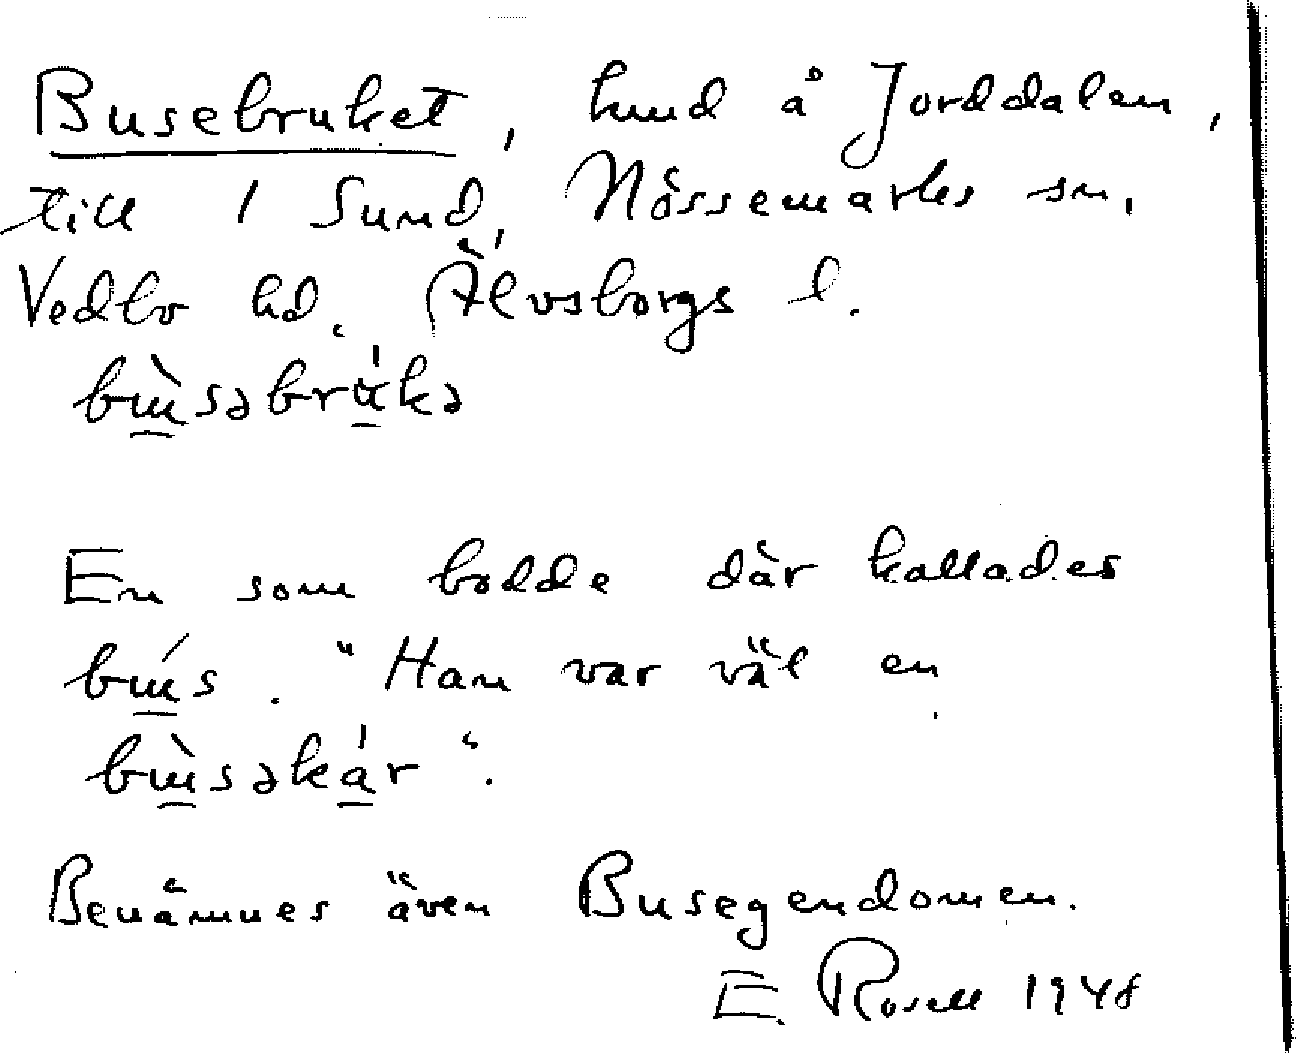 Busebruket, hmd å Jorddalen,
till 1 Sund, Nössemarks sn,
Vedbo hd. Älvsborgs l.
bùsəbrúkə
En som bodde där kallades
bús. "Han var väl en
bùsəkár".
Benämnes även Busegendomen.
E. Rosell 1948